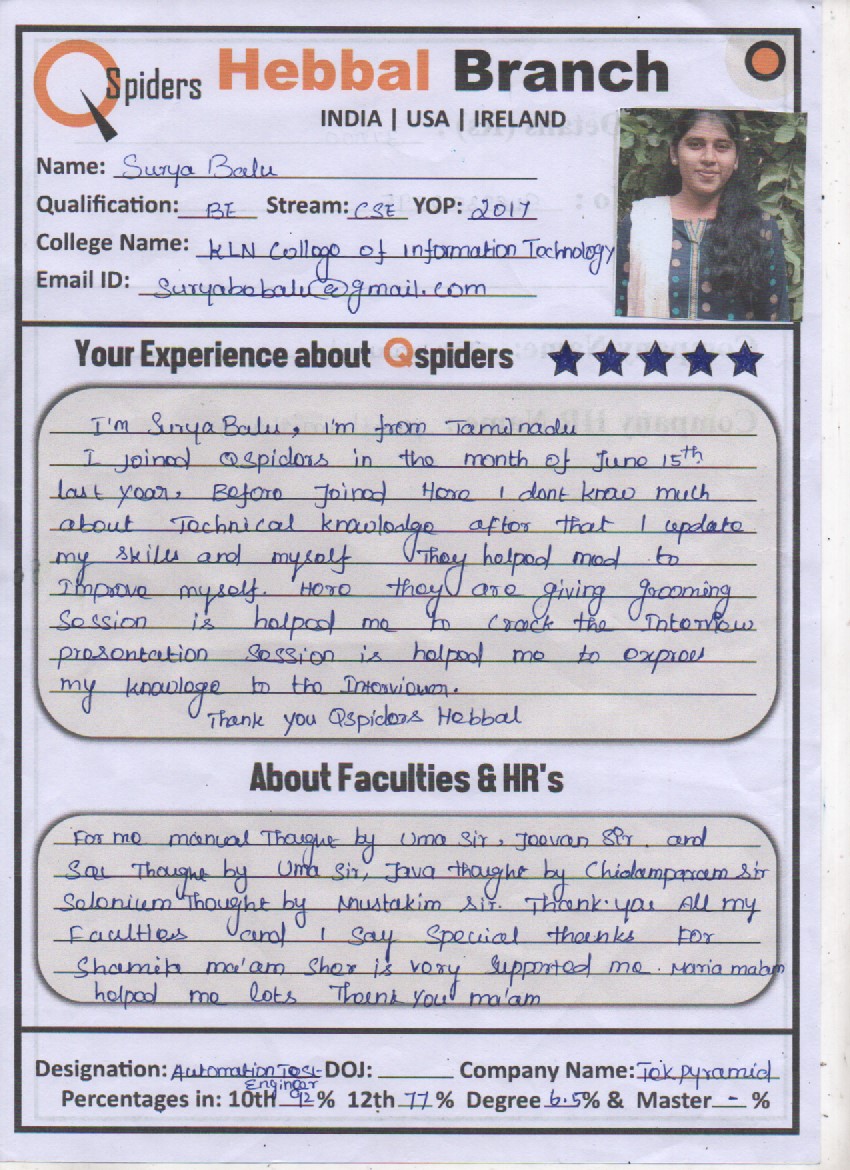 QSpiders Hebbal Branch
INDIA | USA | IRELAND
Name: Surya Balu
Qualification: BE Stream: CSE YOP: 2017
College Name: KLN College of Information Technology
Email ID: Suryabobalu@gmail.com
Your Experience about Qspiders
I'm Surya Balu, I'm from Tamilnadu
I joined QSpiders in the month of June 15th
last year. Before Joined Here I dont know much
about Technical knowledge after that I update
my skills and myself They helped med to
Improve myself. Here they are giving grooming
Session is helped me to crack the Interview
presentation Session is helped me to express
my knowlege to the Interviewer.
Thank you Qspiders Hebbal
About Faculties & HR's
For me manual Thaught by Uma Sir, Jeevan Sir. and
Thaught by Uma Sir, Java thaught by Chidamparam Sir
Selenium Thaught by Mustakim Sir. Thank you All my
Faculties and I Say Special thanks For
ma'am Sher is very Supported me. Maria ma'am
helped me lots Thank you ma'am
Designation: Automation Test DOJ: Company Name: Tek pyramid
Engineer
Percentages in: 10th 92% 12th 77% Degree 6.5% & Master - %